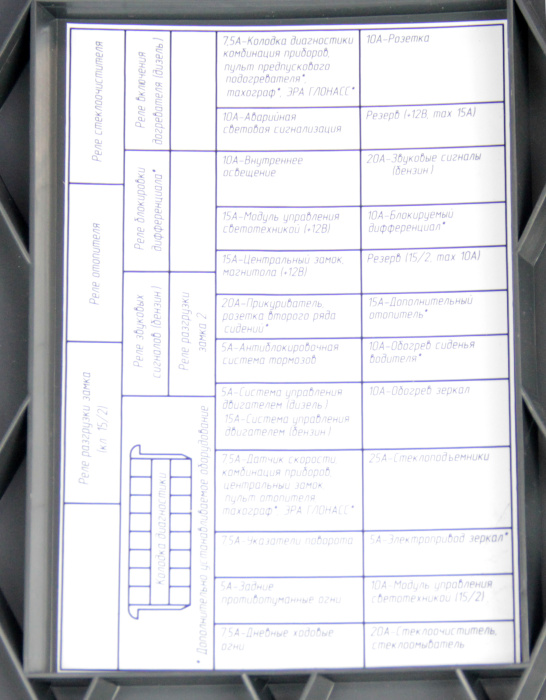 Реле стеклоочистителя
Реле отопителя
Реле разгрузки замка
(кл. 15/2)
Реле включения
догревателя (дизель)
Реле блокировки
дифференциала*
Реле звуковых
сигналов (бензин)
Реле разгрузки
замка 2
колодка диагностики
* Дополнительно устанавливаемое оборудование
7,5А-Колодка диагностики
комбинация приборов,
пульт предпускового
подогревателя*,
тахограф*, ЭРА ГЛОНАСС*
10А-Розетка
10А-Аварийная
световая сигнализация
Резерв (+12В, max 15А)
10А-Внутреннее
освещение
20А-Звуковые сигналы
(бензин)
15А-Модуль управления
светотехникой (+12В)
10А-Блокируемый
дифференциал*
15А-Центральный замок,
магнитола (+12В)
Резерв (15/2, max 10А)
20А-Прикуриватель,
розетка второго ряда
сидений*
15А-Дополнительный
отопитель*
5А-Антиблокировочная
система тормозов
10А-Обогрев сиденья
водителя*
5А-Система управления
двигателем (дизель)
15А-Система управления
двигателем (бензин)
10А-Обогрев зеркал
7,5А-Датчик скорости
комбинация приборов
центральный замок
пульт отопителя
тахограф*, ЭРА ГЛОНАСС*
25А-Стеклоподъемники
7,5А-Указатели поворота
5А-Электропривод зеркал*
5А-Задние
противотуманные огни
10А-Модуль управления
светотехникой (15/2)
7,5А-Дневные ходовые
огни
20А-Стеклоочиститель,
стеклоомыватель